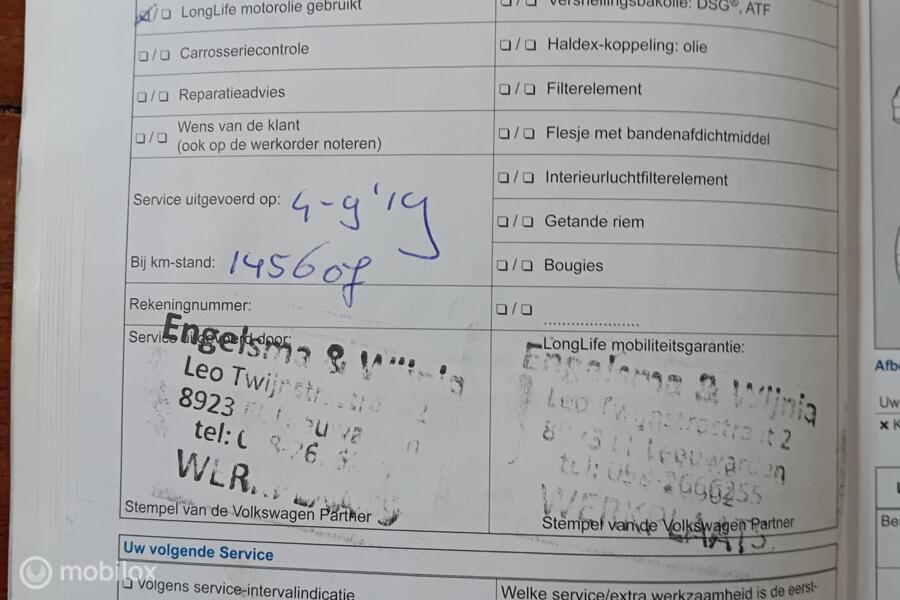 LongLife motorolie gebruikt
Versnellingsbakolie: DSG®, ATF
Carrosseriecontrole
Haldex-koppeling: olie
Reparatieadvies
Filterelement
Wens van de klant
(ook op de werkorder noteren)
Flesje met bandenafdichtmiddel
Interieurluchtfilterelement
Service uitgevoerd op: 4-9'19
Getande riem
Bij km-stand:
Bougies
Rekeningnummer:
Service uitgevoerd door:
Engelsma & Wijnia
Leo Twijnstrastraat 2
8923
tel:
Stempel van de Volkswagen Partner
LongLife mobiliteitsgarantie:
Engelsma & Wijnia
Leo Twijnstrastraat 2
Leeuwarden
tel: 058-2666255
WERKPLAATS.
Stempel van de Volkswagen Partner
Uw volgende Service
Volgens service-intervalindicatie
Welke service/extra werkzaamheid is de eerst-
Afb
Uw
Be
mobilox